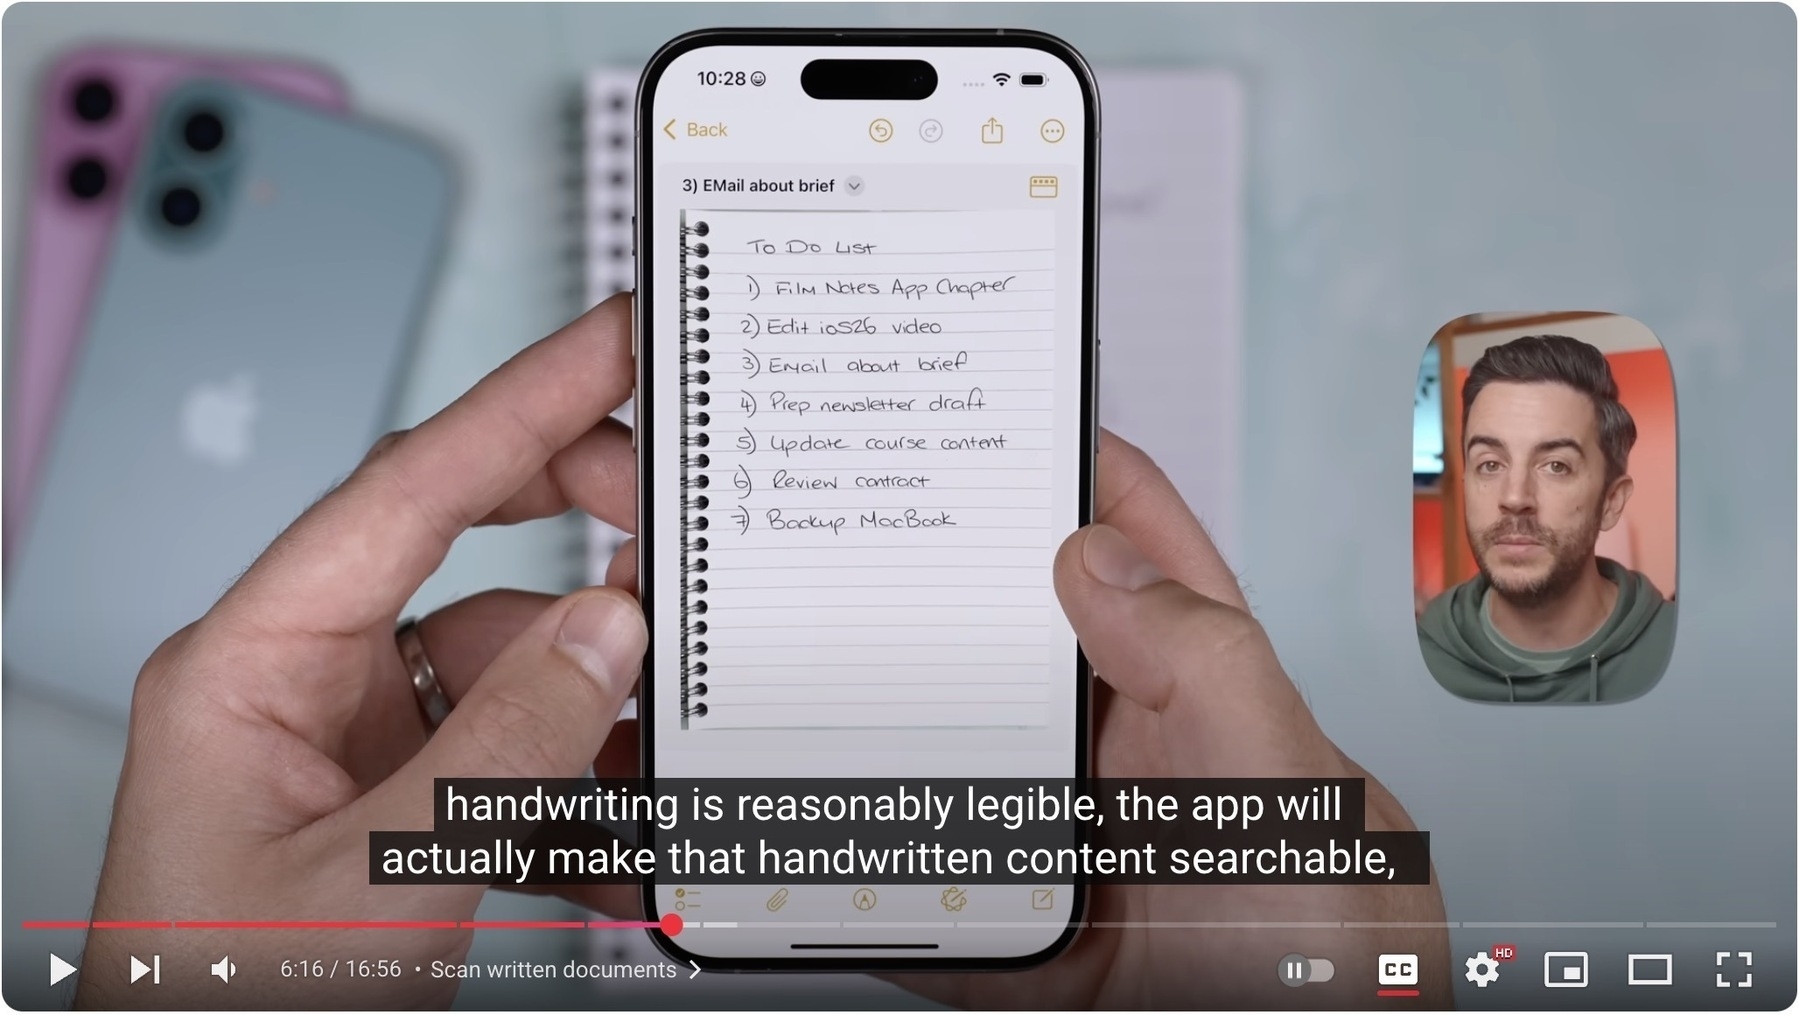 10:28
Back
3) EMail about brief
To Do List
1) Film Notes App Chapter
2) Edit ios26 video
3) Email about brief
4) Prep newsletter draft
5) Update course content
6) Review contract
7) Backup MacBook
handwriting is reasonably legible, the app will
actually make that handwritten content searchable,
6:16 / 16:56 • Scan written documents
CC
HD